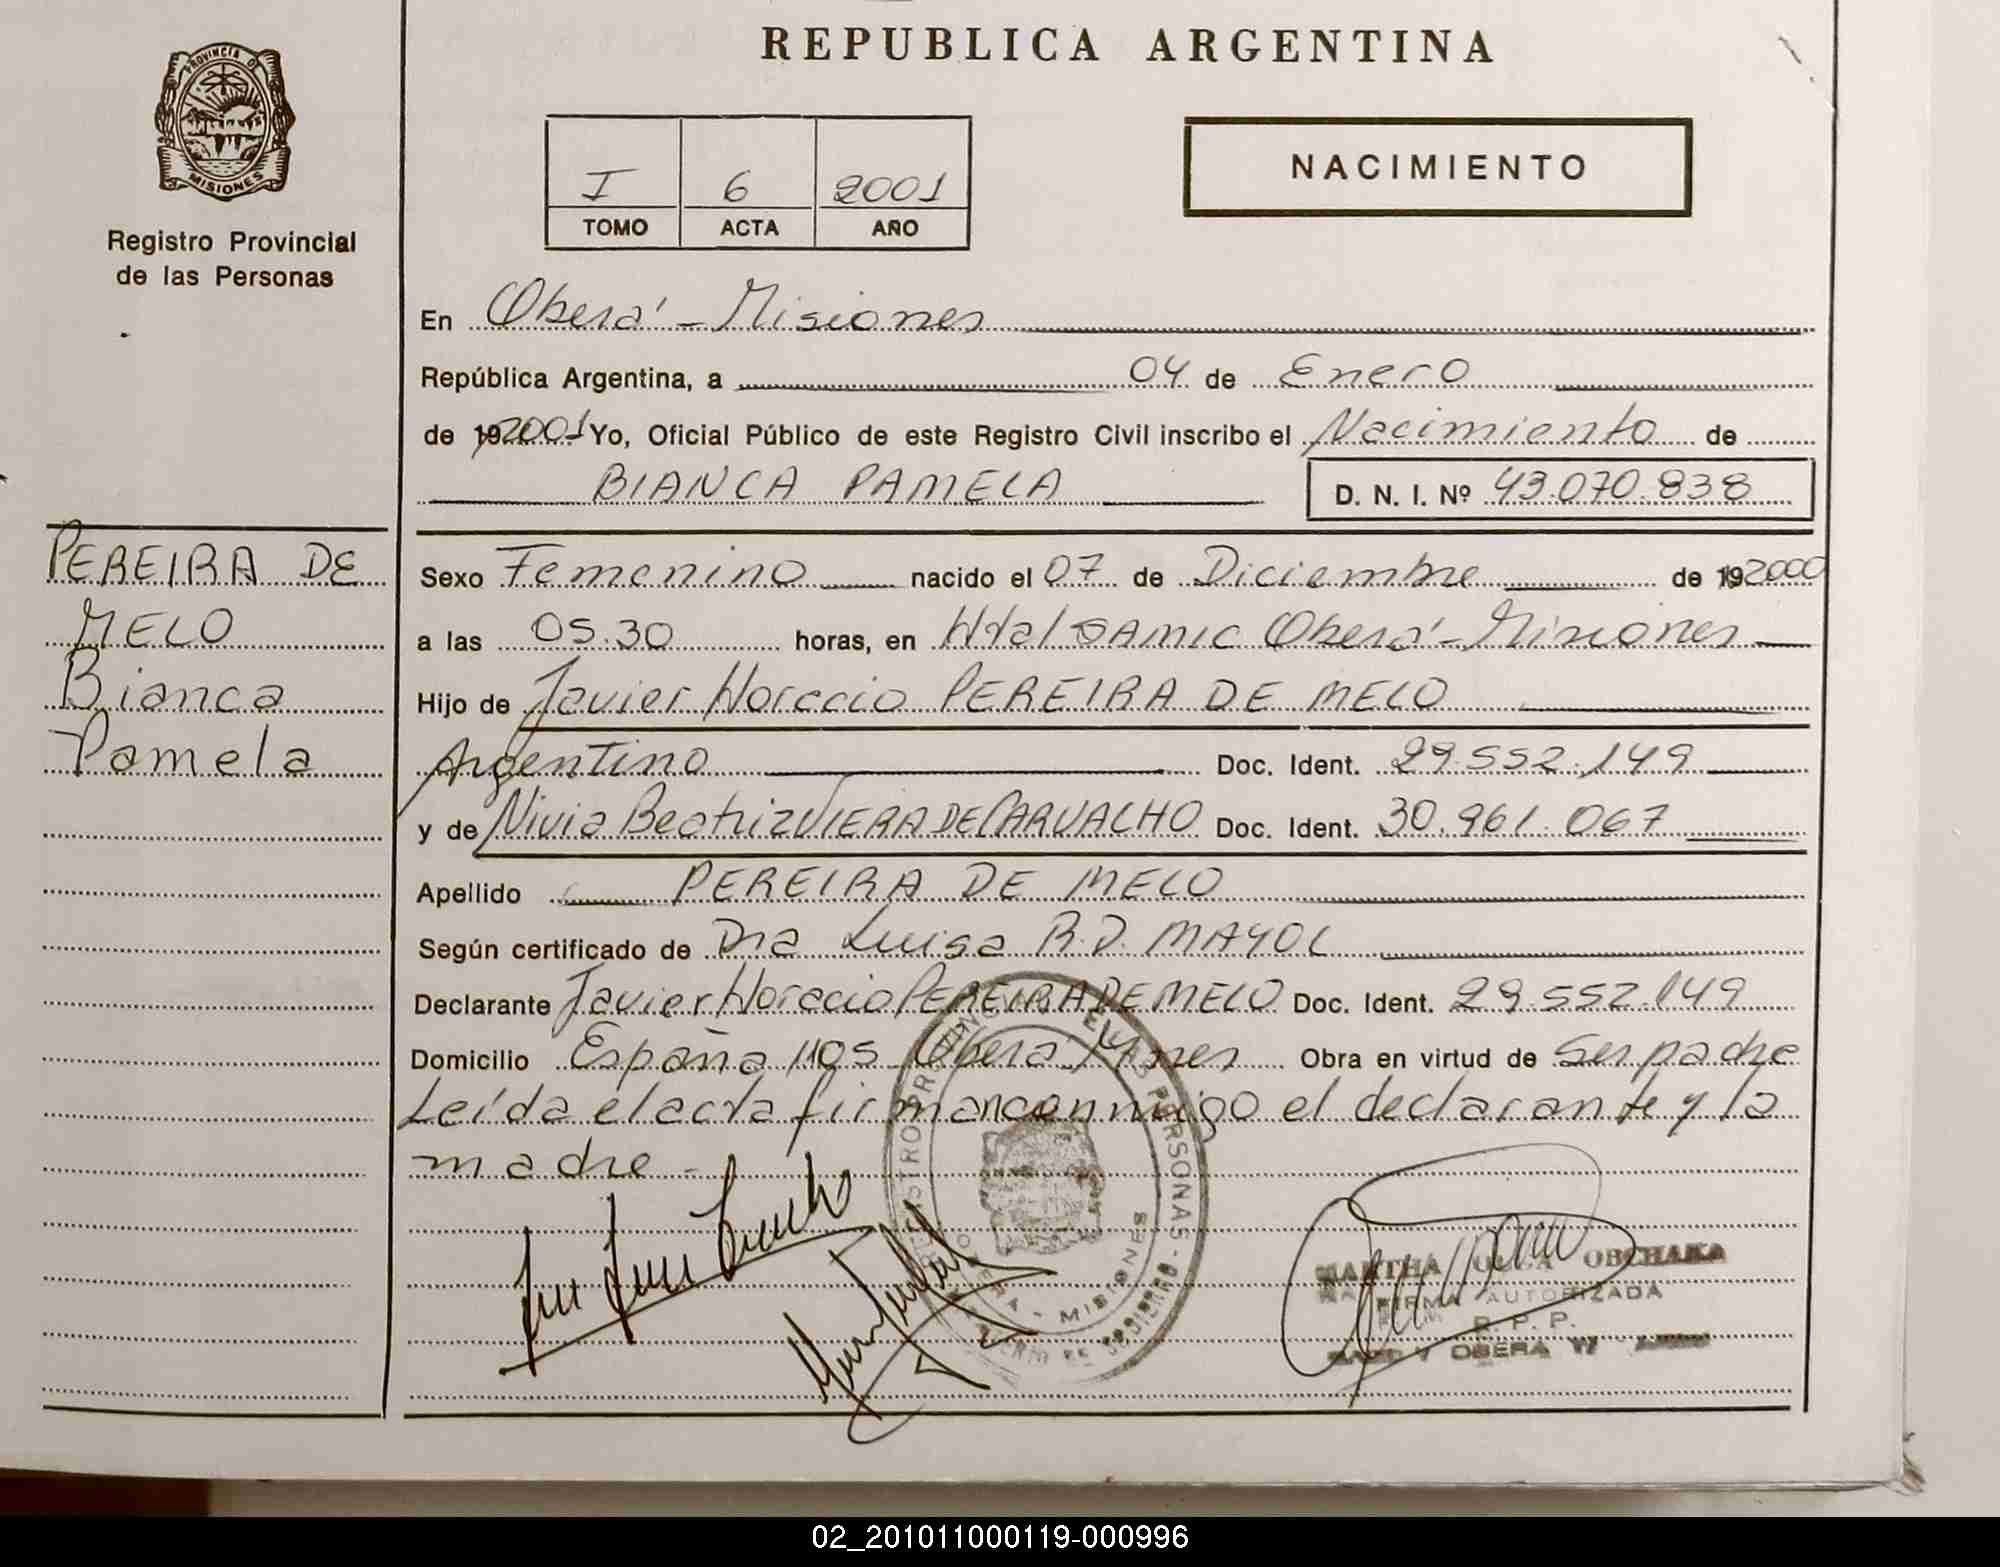 PROVINCIA DE
MISIONES
Registro Provincial
de las Personas
PEREIRA DE
MELO
Bianca
Pamela
REPUBLICA ARGENTINA
I 6 2001
TOMO ACTA AÑO
NACIMIENTO
En Oberá - Misiones
República Argentina, a 04 de Enero
de 19 2001 Yo, Oficial Público de este Registro Civil inscribo el Nacimiento de
BIANCA PAMELA D. N. I. Nº 43.070.838
Sexo Femenino nacido el 07 de Diciembre de 19 2000
a las 05.30 horas, en Htal SAMIC Oberá - Misiones
Hijo de Javier Horacio PEREIRA DE MELO
Argentino Doc. Ident. 29.552.149
y de Nivia Beatriz VIERA DE CARVALHO Doc. Ident. 30.961.067
Apellido PEREIRA DE MELO
Según certificado de Dra Luisa R.D. MAYOL
Declarante Javier Horacio PEREIRA DE MELO Doc. Ident. 29.552.149
Domicilio España 1105 Oberá Mnes Obra en virtud de Ser padre
Leída el acta firman conmigo el declarante y la
madre -
REGISTRO PROVINCIAL DE LAS PERSONAS
OBERA - MISIONES
MARTHA OLGA OBCHAKA
FIRMA AUTORIZADA
R. P. P.
OBERA
02_201011000119-000996